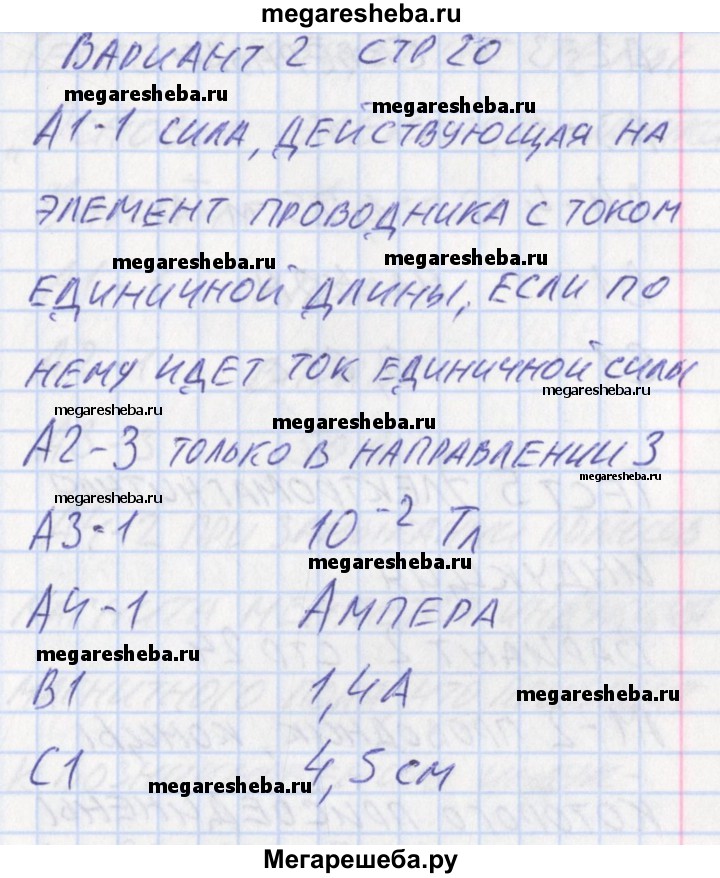 megaresheba.ru
ВАРИАНТ 2 СТР 20
megaresheba.ru
megaresheba.ru
А1-1 СИЛА, ДЕЙСТВУЮЩАЯ НА
ЭЛЕМЕНТ ПРОВОДНИКА С ТОКОМ
megaresheba.ru
megaresheba.ru
ЕДИНИЧНОЙ ДЛИНЫ, ЕСЛИ ПО
НЕМУ ИДЕТ ТОК ЕДИНИЧНОЙ СИЛЫ
megaresheba.ru
megaresheba.ru
megaresheba.ru
А2-3 ТОЛЬКО В НАПРАВЛЕНИИ 3
megaresheba.ru
megaresheba.ru
А3-1 10⁻² Тл
megaresheba.ru
А4-1 АМПЕРА
megaresheba.ru
В1 1,4А
megaresheba.ru
С1 4,5 см
megaresheba.ru
Мегарешеба.ру